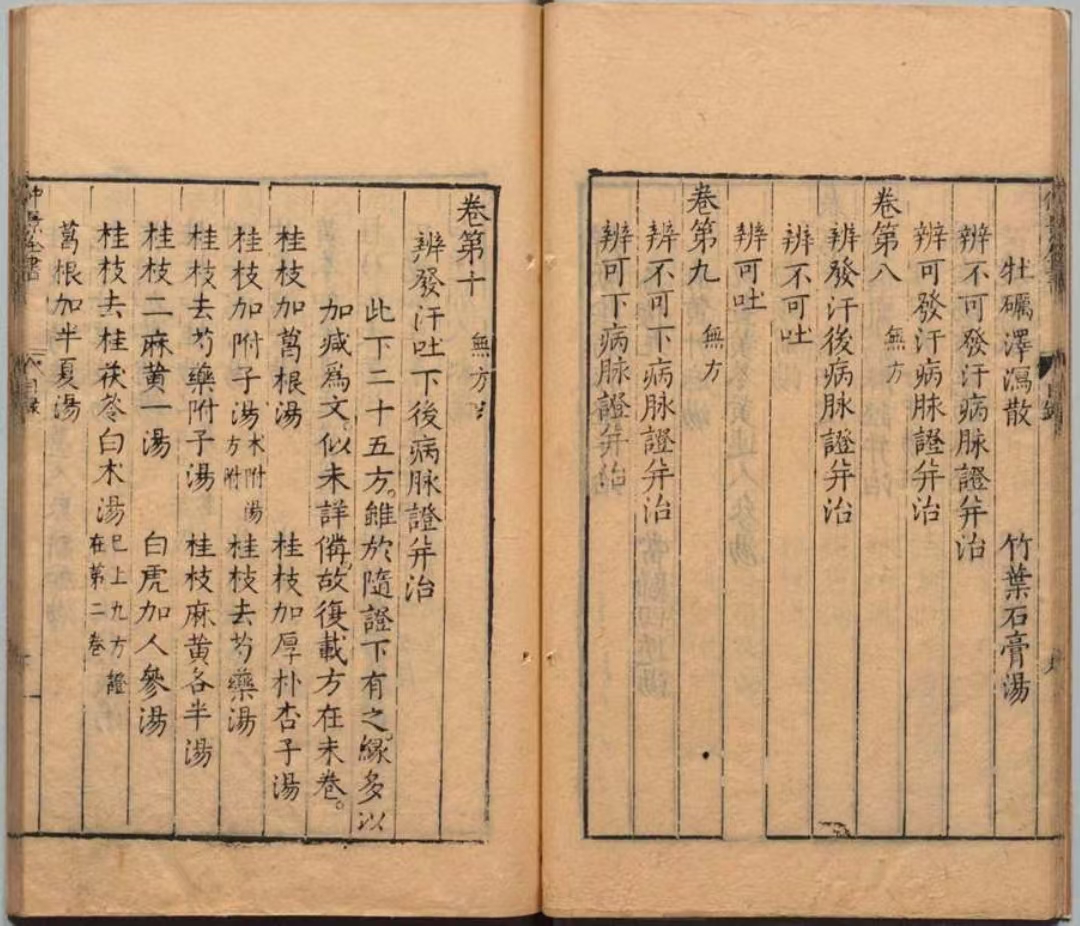 牡礪澤瀉散 竹葉石膏湯
辨不可發汗病脉證并治
辨可發汗病脉證并治
卷第八 無方
辨發汗後病脉證并治
辨不可吐
辨可吐
卷第九 無方
辨不可下病脉證并治
辨可下病脉證并治
卷第十 無方
辨發汗吐下後病脉證并治
此下二十五方。雖於隨證下有之。緣多以
加減爲文。似未詳備。故復載方在末卷。
桂枝加葛根湯 桂枝加厚朴杏子湯
桂枝加附子湯 术附湯方附 桂枝去芍藥湯
桂枝去芍藥附子湯 桂枝麻黄各半湯
桂枝二麻黄一湯 白虎加人參湯
桂枝去桂茯苓白术湯 已上九方證在第二卷
葛根加半夏湯
仲景全書
目錄